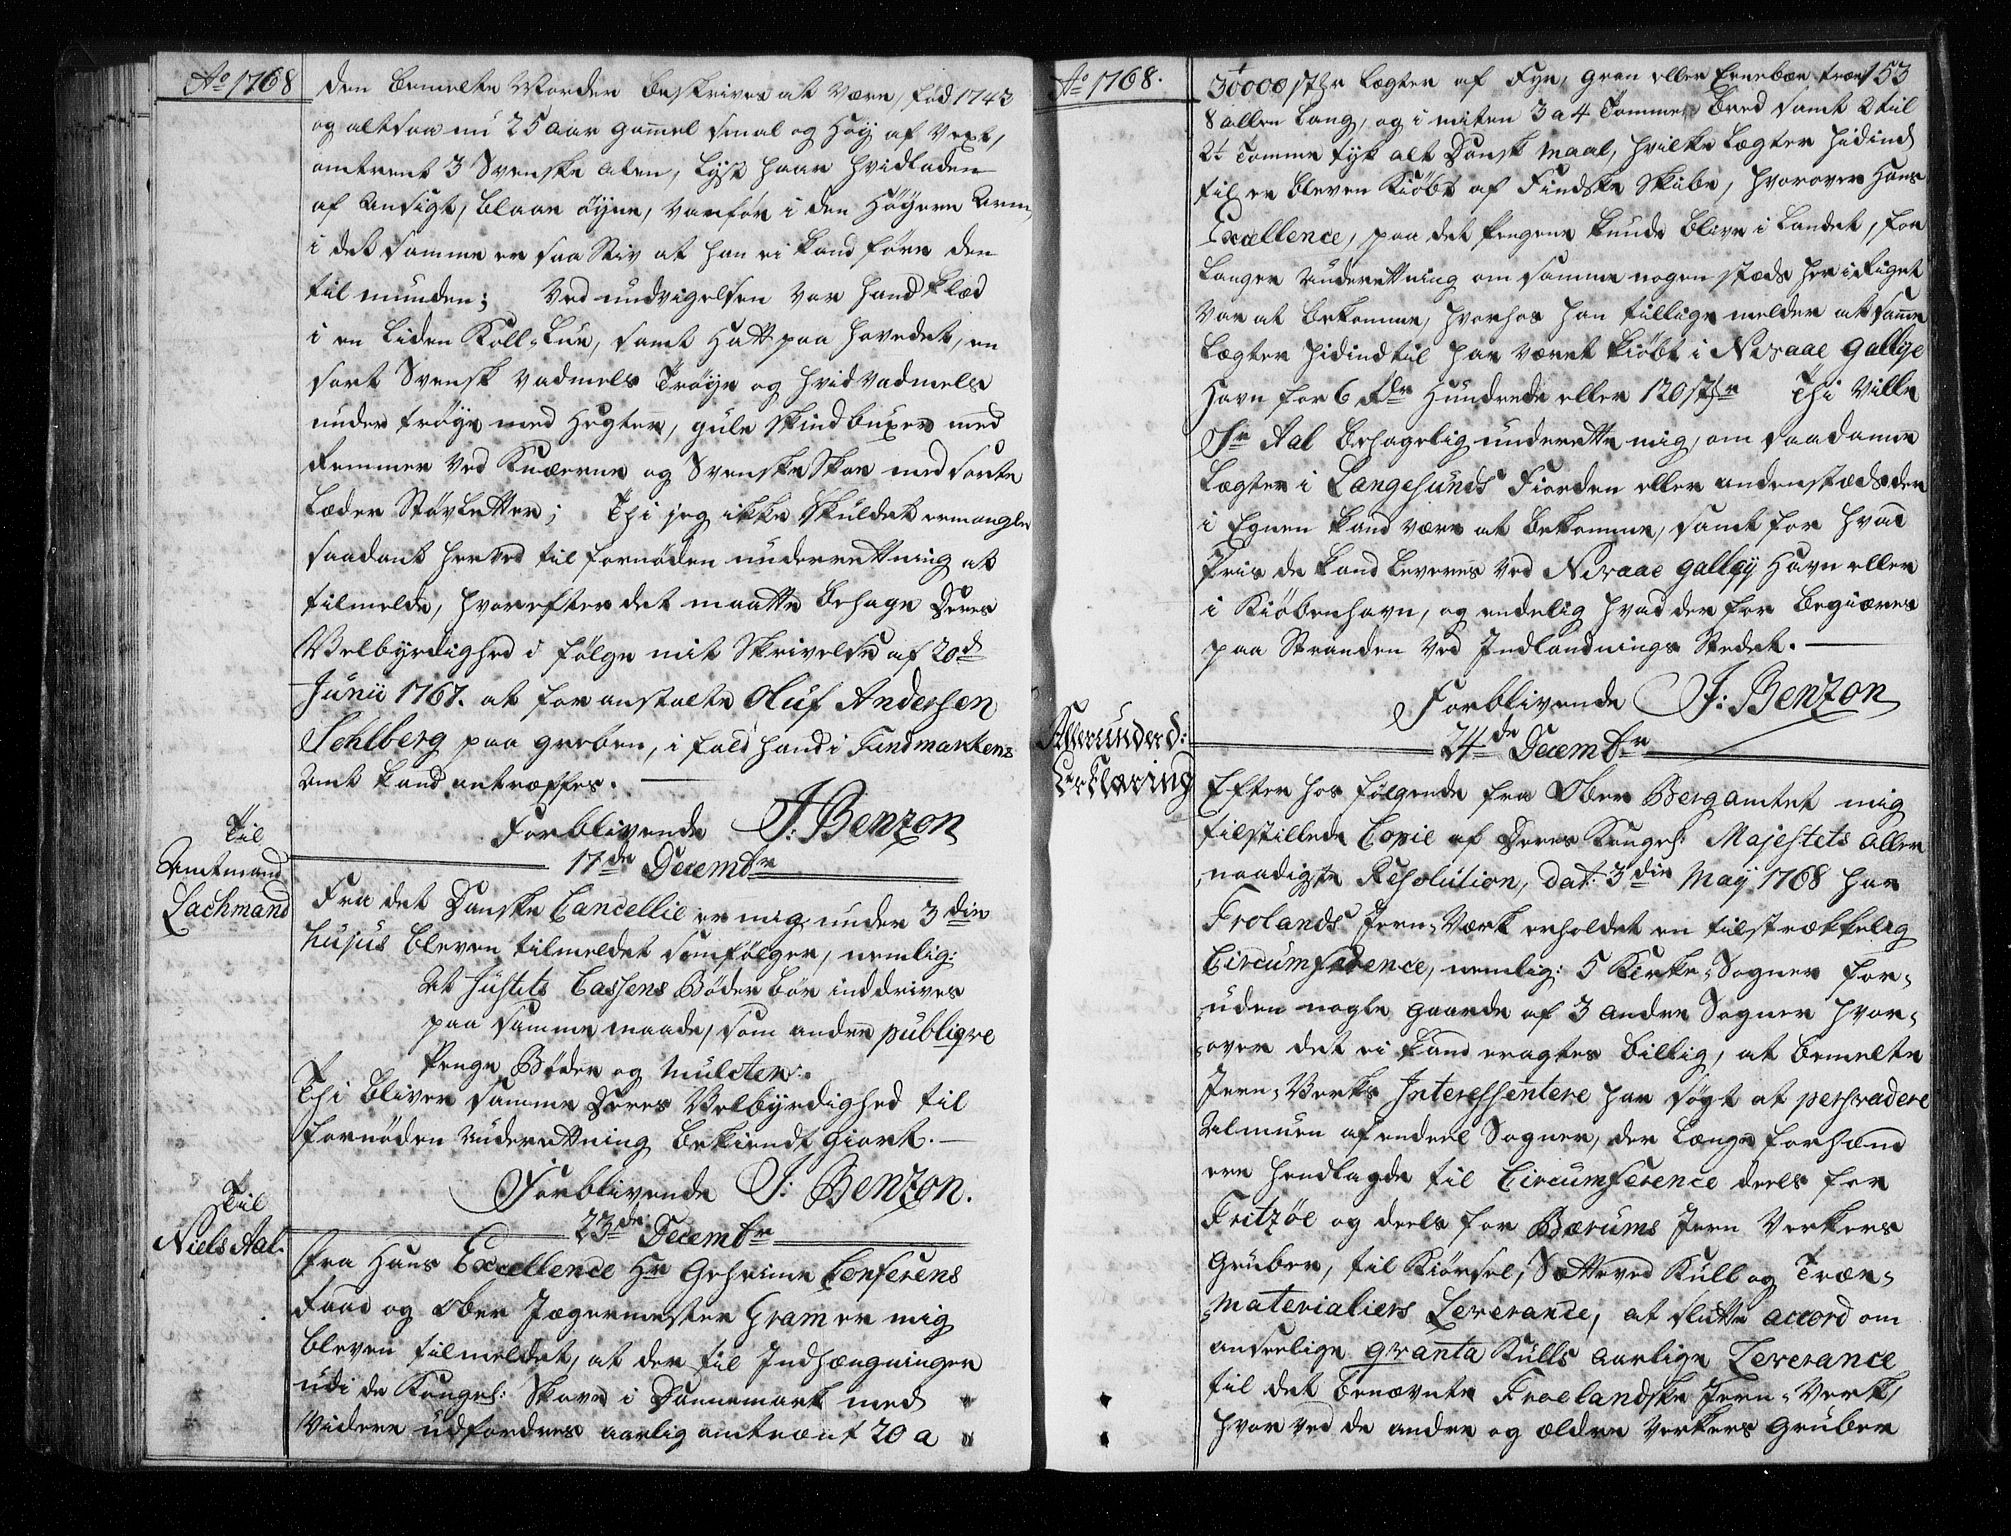 Ao 1768
den bemelte Morder beskrives at være, fød 1743
og altsaa nu 25 aar gammel smal og høy af vext,
omtrent 3 Svenske alen, lyst haar hvidladen
af Ansigt, blaae øyne, vanfør i den høyere Arm,
i det samme er saa stiv at han ei kand føre den
til munden; Ved undvigelsen var hand klæd
i en liden Koll-Lue, samt Hatt paa hovedet, en
sort Svensk vadmels Trøye og hvid vadmels
under trøye med Hegter, gule skindbuxer med
Remmer ved Knæerne og Svenske Skoe med sorte
Læder Støvletter; Thi jeg ikke skuldet ermangle
saadant herved til fornøden underrettning at
tilmelde, hvorefter det maatte behage Deres
Velbyrdighed i følge mit Skrivelse af 20de
Junii 1767. at foranstalte Oluf Andersen
Sehlberg paa greben, i fald hand i Findmarkens
Amt kand antræffes.
Forblivende J: Benzon
17de Decembr
Til
Amtmand
Lachmand
Fra det Danske Cancellie er mig under 3die
hujus bleven tilmeldet som følger, nemlig:
At Justits Cassens Bøder bør inddrives
paa samme maade, som andre publiqve
Penge Bøder og mulcter:
Thi bliver samme Deres Velbyrdighed til
fornøden Underrettning bekiendtgiort.
Forblivende J: Benzon.
23de Decembr
Til
Niels Aal.
Fra Hans Excellence Hr Geheime Conferens
Raad og Ober Jægermester Gram er mig
bleven tilmeldet, at der til Indhængninger
udi de Kongel: Skove i Dannemark med
Videre udfordres aarlig omtrænt 20 a
Ao 1768.
153
30000 stkr Lægter af Fyr, gran eller Enebær træe
8 allen Lang, og i miten 3 a 4 Tommer bred samt 2 til
2½ Tomme tyk alt Dansk maal, hvilke Lægter hidind
til er bleven kiøbt af Findske Skibe, hvorover Hans
Excellence, paa det Pengene kunde blive i Landet, for
langer Underrettning om samme nogen stæds her i Riget
var at bekomme, hvorhos han tillige melder at samme
Lægter hidindtil har været kiøbt i Nivaae Galleje
Havn for 6 rdr Hundrede eller 120 stkr Thi ville
Sr Aal behagelig underrette mig, om saadanne
Lægter i Langesunds Fiorden eller andenstæds der
i Egnen kand være at bekomme, samt for hvad
Priis de kand leveres ved Nivaae galley Havn eller
i Kiøbenhavn, og endelig hvad der for begiæres
paa Stranden ved Indladnings Stedet.
Forblivende J: Benzon
24de Decembr
Allerunderd:
Erklæring
Efter hos følgende fra Ober Bergamtet mig
tilstillede Copie af Deres Kongel: Majestets aller
naadigste Resolution, dat: 3die May 1768 har
Frolands Jern-Værk erholdet en tilstrækkelig
Circumference, nemlig: 5 Kirke-Sogner for-
uden nogle gaarde af 3 andre Sogner hvor-
over det ei kand eragtes billig, at bemelte
Jern-Verks Interessentere har søgt at persvadere
Almuen af endeel Sogner, der længe forhænd
ere henlagde til Circumference deels for
Fritzøe og deels for Bærums Jern Verkers
Gruber, til Kiørsel, Sætteved Kull og Træe-
materialiers Leverance, at slutte accord om
anseelige qvanta Kulls aarlige Leverance
til det benævnte Froelandske Jern-Verk,
hvorved de andre og ældre Verkers Gruber